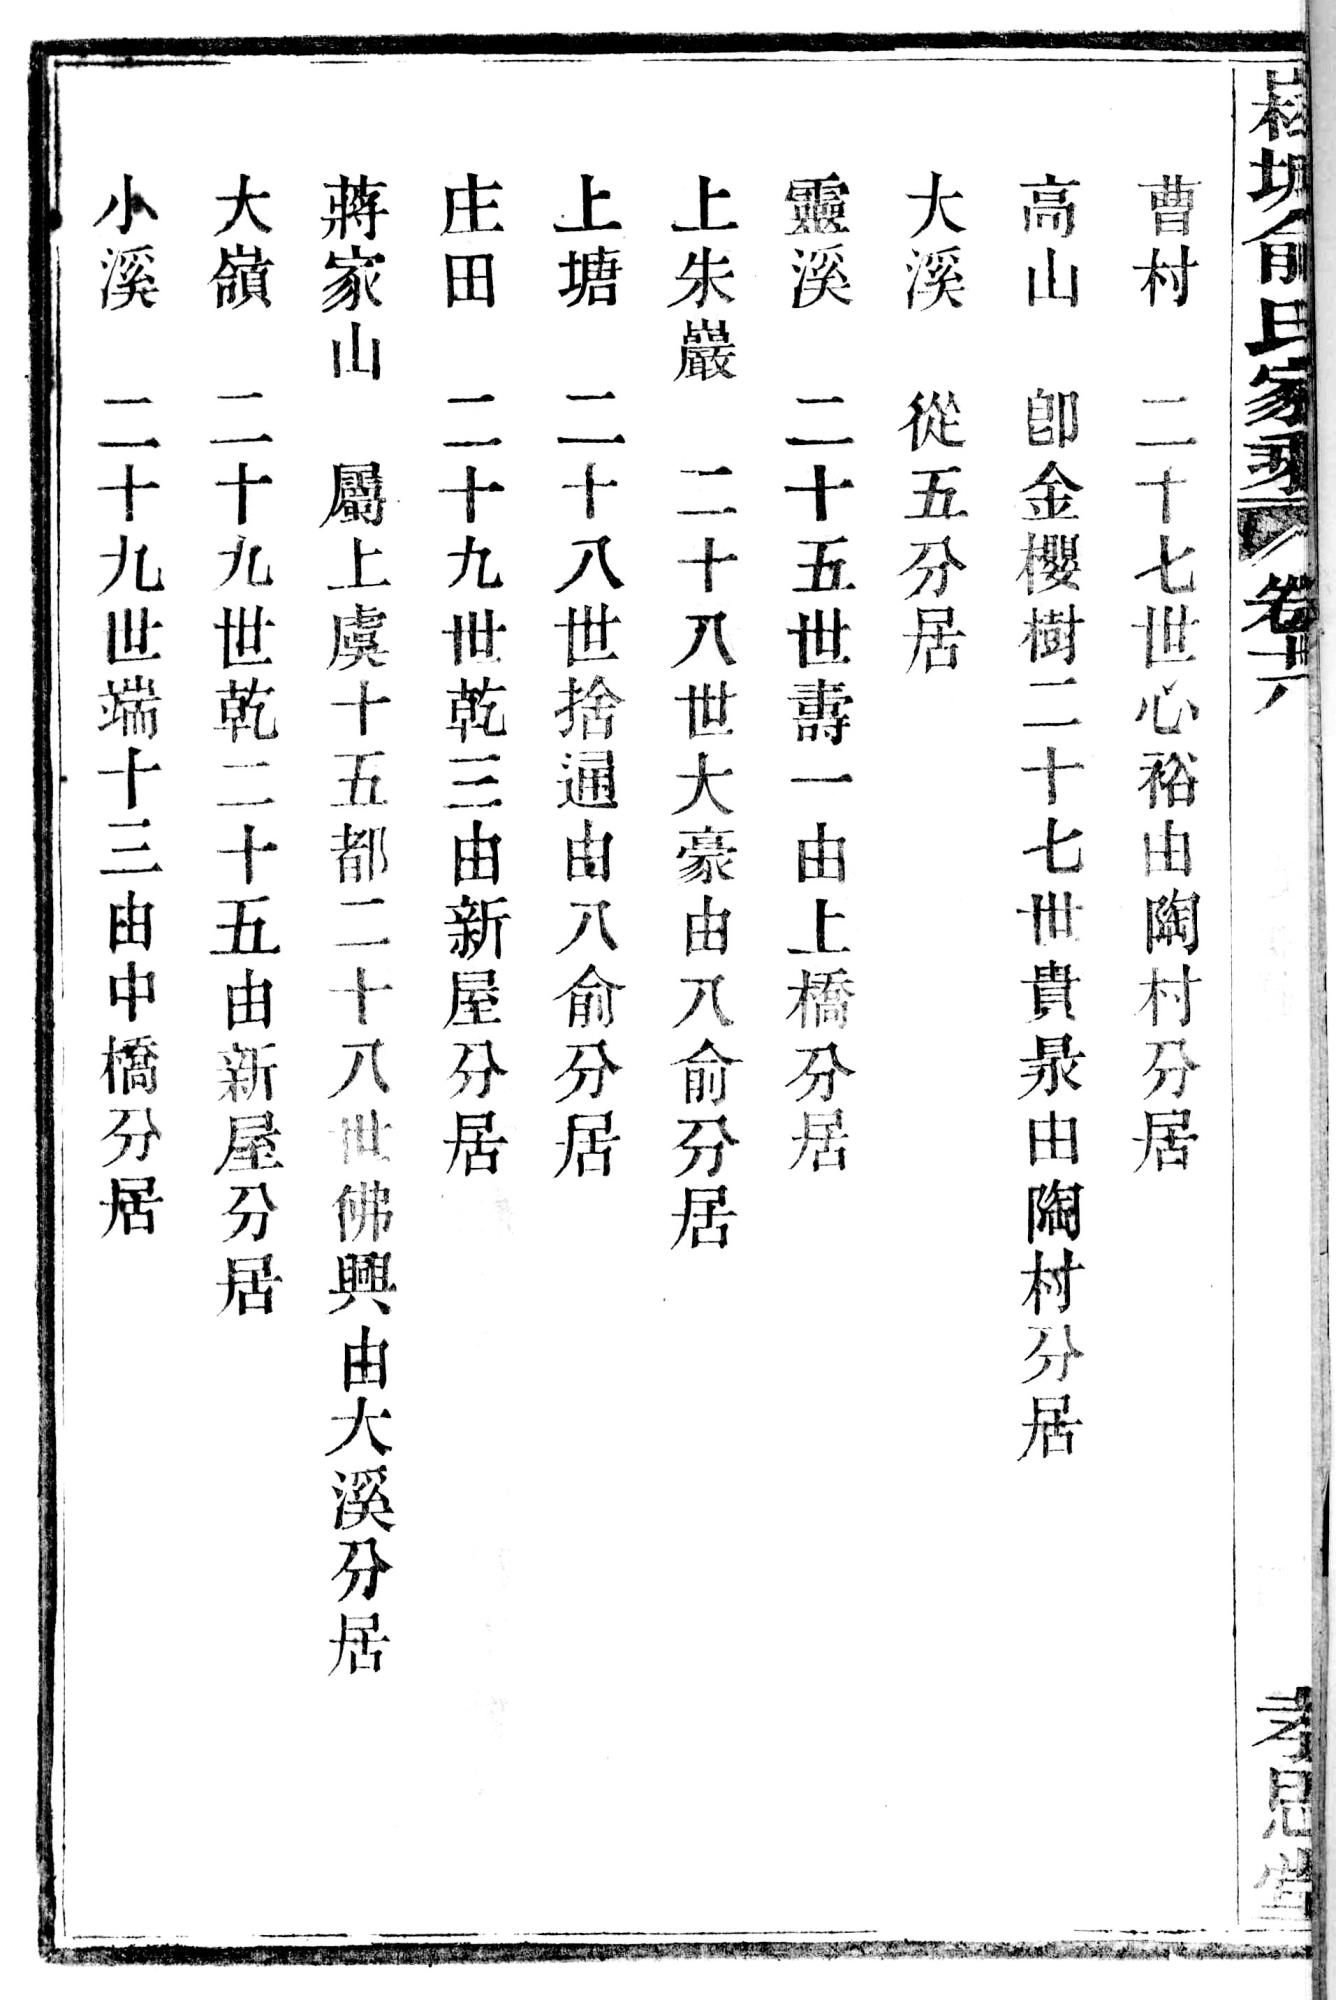 俞氏家乘 卷十八 孝思堂
曹村 二十七世心裕由陶村分居
高山 卽金櫻樹二十七世貴泉由陶村分居
大溪 從五分居
靈溪 二十五世壽一由上橋分居
上朱巖 二十八世大豪由八俞分居
上塘 二十八世捨通由八俞分居
庄田 二十九世乾三由新屋分居
蔣家山 屬上虞十五都二十八世佛興由大溪分居
大嶺 二十九世乾二十五由新屋分居
小溪 二十九世端十三由中橋分居